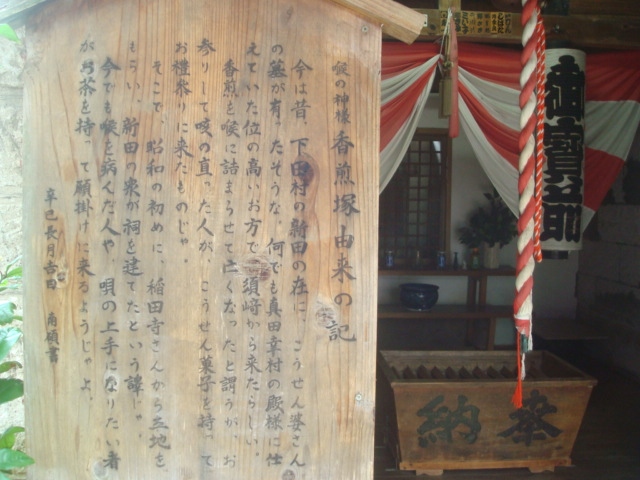 喉の神様 香煎塚由来の記
今は昔、下田村の新田の在に、こうせん婆さん
の墓が有ったそうな。何でも真田幸村の殿様に仕
えていた位の高いお方で、須崎から来たらしい。
香煎を喉に詰まらせて亡くなったと謂うが、お
参りして咳の直った人が、こうせん菓子を持って
お禮参りに来たものじゃ。
そこで、昭和の初めに、稲田寺さんから土地を
もらい、新田の衆が祠を建てたという譯じゃ。
今でも喉を病んだ人や、唄の上手になりたい者
がお茶を持って願掛けに来るようじゃよ。
辛巳長月吉日
御寶前
奉納